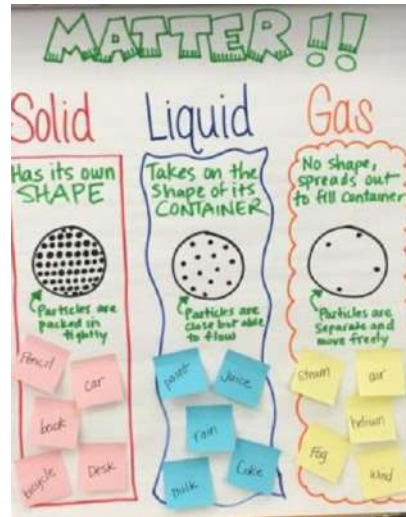 MATTER!!
Solid
Has its own
SHAPE
Particles are
packed in
tightly
Pencil
car
book
bicycle
Desk
Liquid
Takes on the
Shape of its
CONTAINER
Particles are
close but able
to flow
paint
Juice
rain
milk
Coke
Gas
No shape,
spreads out
to fill container
Particles are
Separate and
move freely
steam
air
helium
Fog
wind